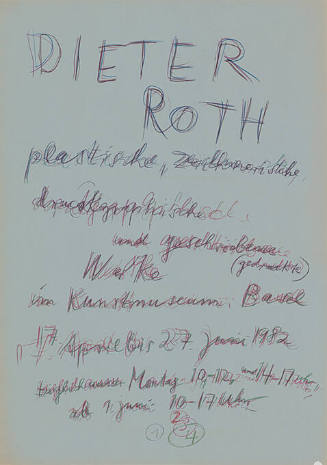 DIETER
ROTH
plastische, zeichnerische,
druckgraphische
und geschriebene
Werke (gedruckte)
im Kunstmuseum Basel
17. April bis 27. Juni 1982
Montag 10-12 und 14-17 Uhr
ab 1. Juni 10-17 Uhr